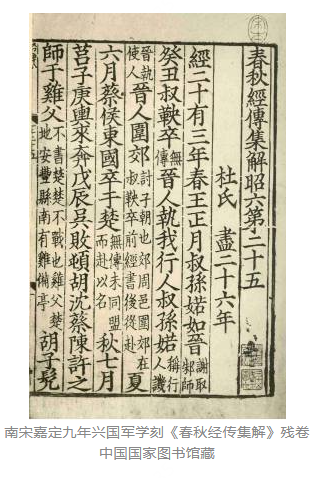 宋本
春秋經傳集解昭六第二十五
杜氏 盡二十六年
經二十有三年春王正月叔孫婼如晉謝取邾師
癸丑叔鞅卒無傳晉人執我行人叔孫婼稱行人譏
晉執使人晉人圍郊討子朝也郊周邑圍郊在叔鞅卒前經書後從赴夏
六月蔡侯東國卒于楚無傳未同盟而赴以名秋七月
莒子庚輿來奔戊辰吳敗頓胡沈蔡陳許之
師于雞父不書楚楚不戰也雞父楚地安豐縣南有雞備亭胡子髡
南宋嘉定九年兴国军学刻《春秋经传集解》残卷
中国国家图书馆藏